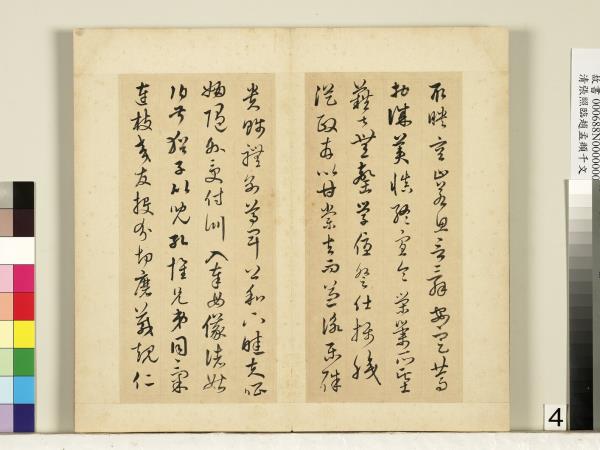 取映容止若思言辭安定篤
初誠美慎終宜令榮業所基
藉甚無竟學優登仕攝職
從政存以甘棠去而益詠樂殊
貴賤禮別尊卑上和下睦夫唱
婦隨外受傅訓入奉母儀諸姑
伯叔猶子比兒孔懷兄弟同氣
連枝交友投分切磨箴規仁
故書 000688N0000000
清張照臨趙孟頫千文
4